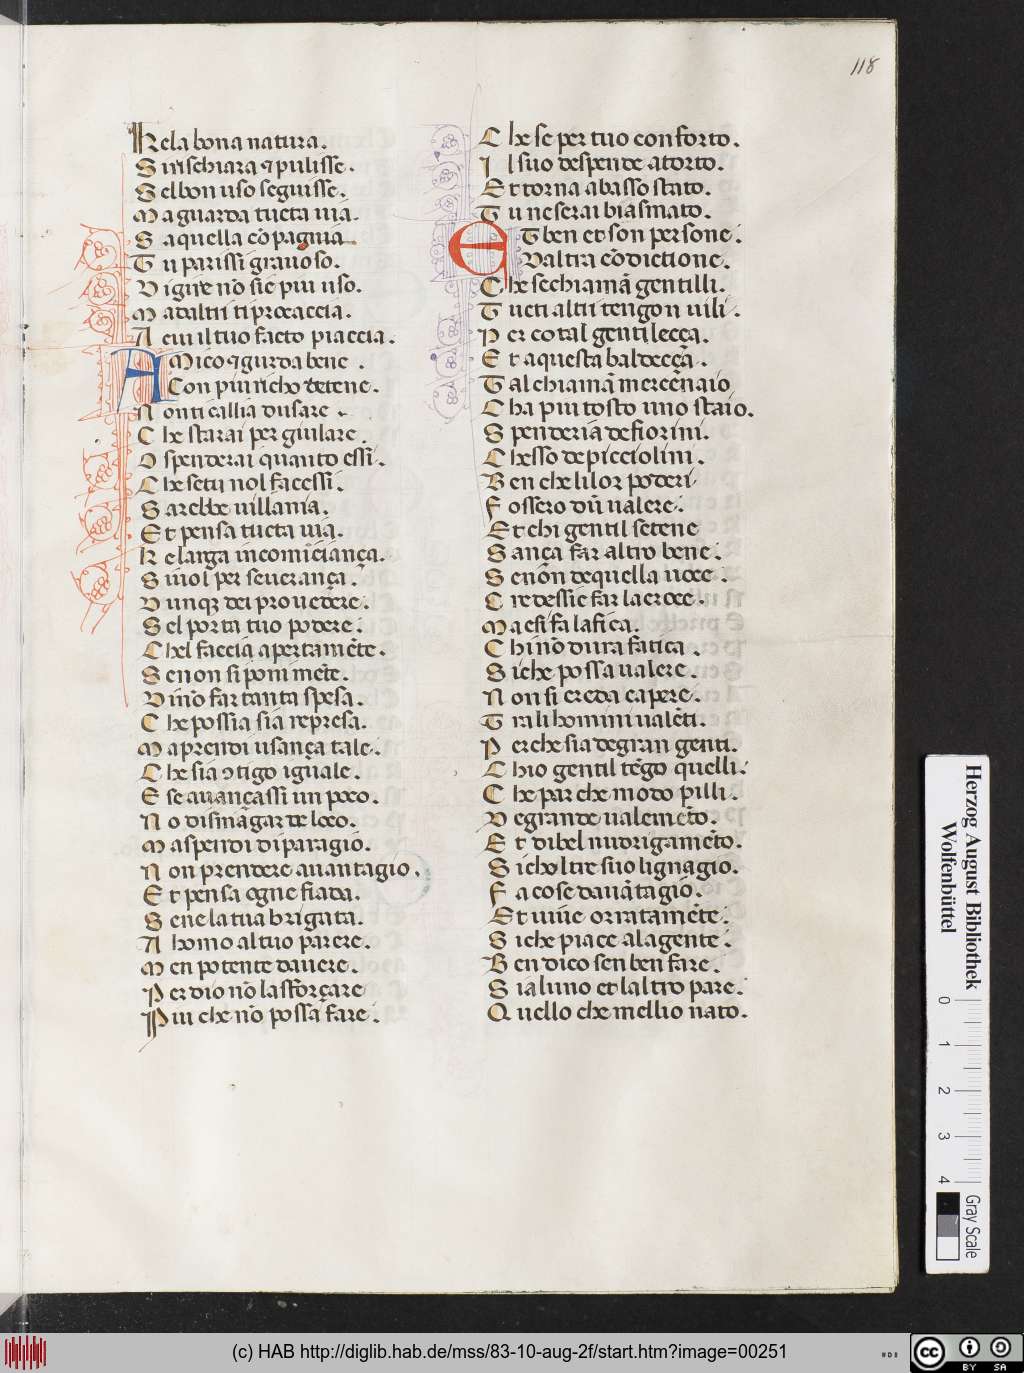 118
Kela bona natura.
S inschiara ⁊ pulisse.
S el bon uso seguisse.
M a guarda tucta uia.
S aquella cōpagnia
T u parissi grauoso.
D i gire nō sie piu uso.
M adaltri ti procaccia.
A cui il tuo facto piaccia.
A Mico ⁊ gurda bene.
Con piu richo tetene.
N on ti callia dusare.
C he starai per giulare.
O spenderai quanto essi.
C he setu nol facessi.
S arebbe uillania.
E t pensa tucta uia.
K e larga incominciança.
S iuol per seuerança.
D unqꝫ dei prouedere.
S el porta tuo podere.
C hel faccia apertamēte.
S enon si poni mēte.
D i nō far tanta spesa.
C he possia sia represa.
M a prendi usança tale.
C he sia ɔtigo iguale.
E se auançassi un poco.
N o dismāgar de loco.
M a spendi di paragio.
N on prendere auantagio.
E t pensa ogne fiada.
S ene la tua brigata.
A homo al tuo parere.
M en potente dauere.
P er dio nō lassforçare
P iu che nō possa fare.
C he se per tuo conforto.
I l suo despende atorto.
E t torna abasso stato.
T u ne serai biasmato.
E T ben et son persone.
Daltra cōdictione.
C he se chiamā gentilli.
T ucti altri tengon uili.
P er cotal gentilecça.
E t aquesta baldecça.
T al chiamā mercēnaio
C ha piu tosto uno staio.
S penderiā de fiorini.
C hesso de picciolini.
B en che li lor poderi
F ossero dū ualere.
E t chi gentil se tene
S ança far altro bene.
S enōn dequella uoce.
C re dessie far la croce.
M a esi fa la fica.
C hi nō dura fatica.
S iche possa ualere.
N on si creda capere.
T ra li homini ualēti.
P erche sia de gran genti.
C hio gentil tēgo quelli.
C he par che modo pilli.
D e grande ualemēto.
E t di bel nudrigamēto.
S icholtre suo lignagio.
F a cose dauātagio.
E t uiue orratamēte.
S iche piace ala gente.
B en dico sen ben fare.
S ia luno et laltro pare.
Q uello che mellio nato.
Herzog August Bibliothek
Wolfenbüttel
0 1 2 3 4
Gray Scale
(c) HAB http://diglib.hab.de/mss/83-10-aug-2f/start.htm?image=00251
cc BY SA